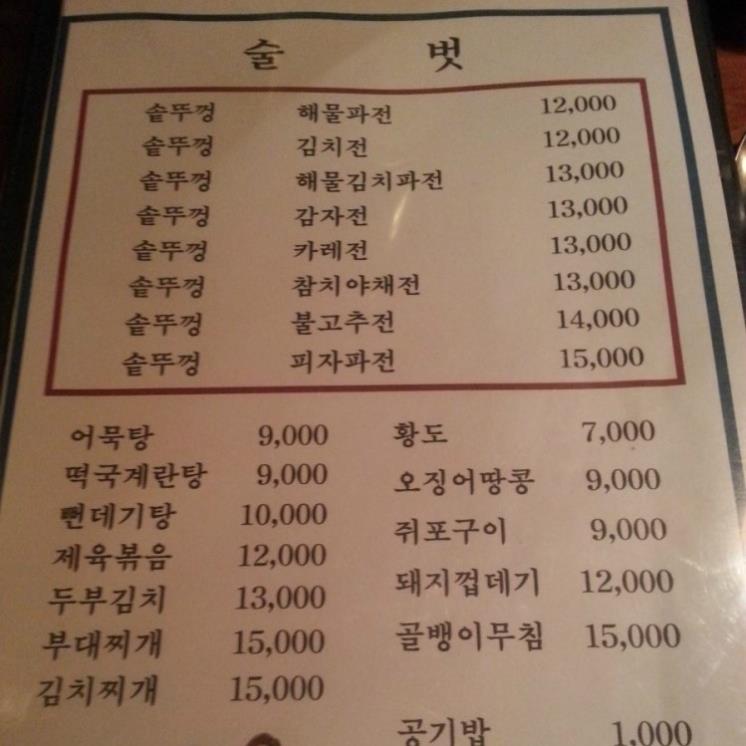 술 벗
솥뚜껑 해물파전 12,000
솥뚜껑 김치전 12,000
솥뚜껑 해물김치파전 13,000
솥뚜껑 감자전 13,000
솥뚜껑 카레전 13,000
솥뚜껑 참치야채전 13,000
솥뚜껑 불고추전 14,000
솥뚜껑 피자파전 15,000
어묵탕 9,000
떡국계란탕 9,000
뻔데기탕 10,000
제육볶음 12,000
두부김치 13,000
부대찌개 15,000
김치찌개 15,000
황도 7,000
오징어땅콩 9,000
쥐포구이 9,000
돼지껍데기 12,000
골뱅이무침 15,000
공기밥 1,000